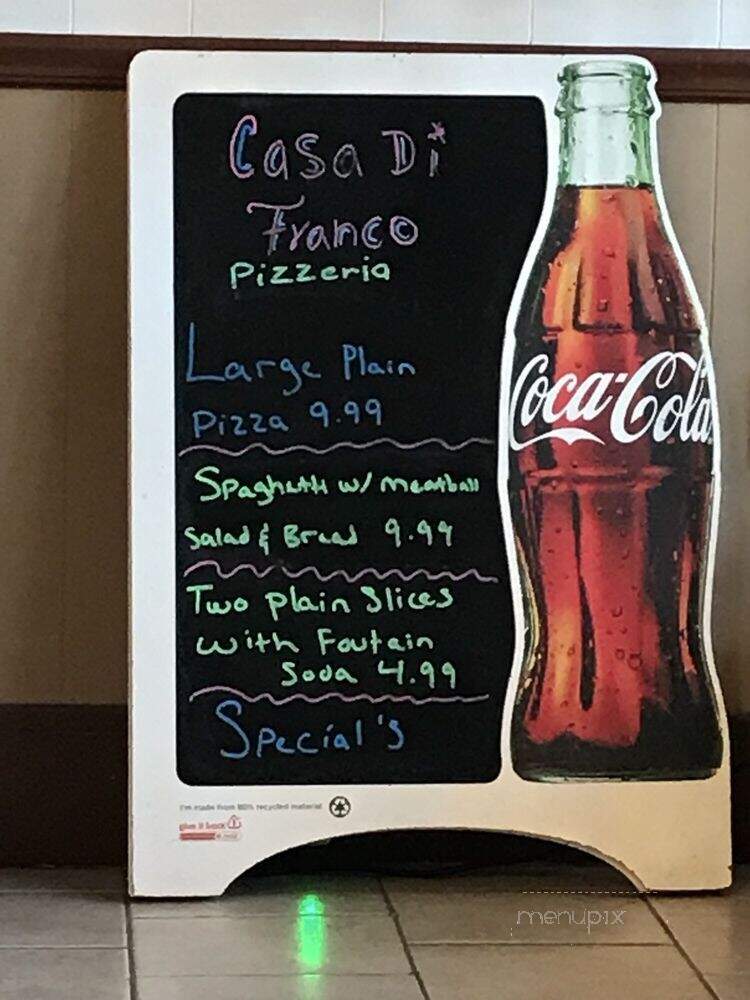 Casa Di
Franco
Pizzeria
Large Plain
Pizza 9.99
Coca-Cola
Spaghetti w/ meatball
Salad & Bread 9.99
Two plain Slices
with Foutain
Soda 4.99
Special's
I'm made from 80% recycled material
give it back
menupix